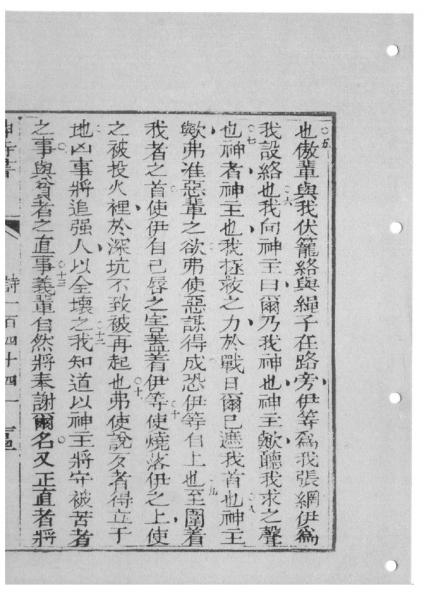 也傲輩與我伏籠絡與繩子在路旁伊等爲我張網伊爲
我設絡也我向神主曰爾乃我神也神主歟聽我求之聲
也神者神主也我拯救之力於戰日爾已遮我首也神主
歟弗准惡輩之欲弗使惡謀得成恐伊等自上也至圍着
我者之首使伊自己唇之害蓋着伊等使燒落伊之上使
之被投火裡於深坑不致被再起也弗使說歹者得立于
地凶事將追强人以全壞之我知道以神主將守被苦者
之事與貧者之直事義輩自然將奉謝爾名又正直者將
神詩書 詩一百四十四